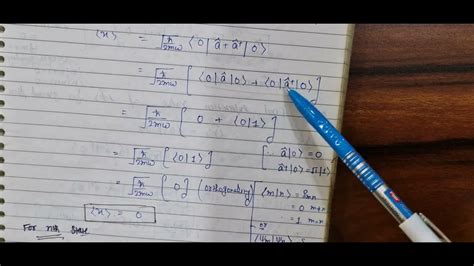 ⟨x⟩ = √(ħ/2mω) ⟨0|â+â†|0⟩
= √(ħ/2mω) [⟨0|â|0⟩ + ⟨0|â†|0⟩]
= √(ħ/2mω) [0 + ⟨0|1⟩]
= √(ħ/2mω) [⟨0|1⟩] [∵ â|0⟩ = 0
â†|0⟩ = √1|1⟩
= √(ħ/2mω) [0] (orthogonality) ⟨m|n⟩ = δmn
= 0 m≠n
= 1 m=n
⟨x⟩ = 0
For nth State